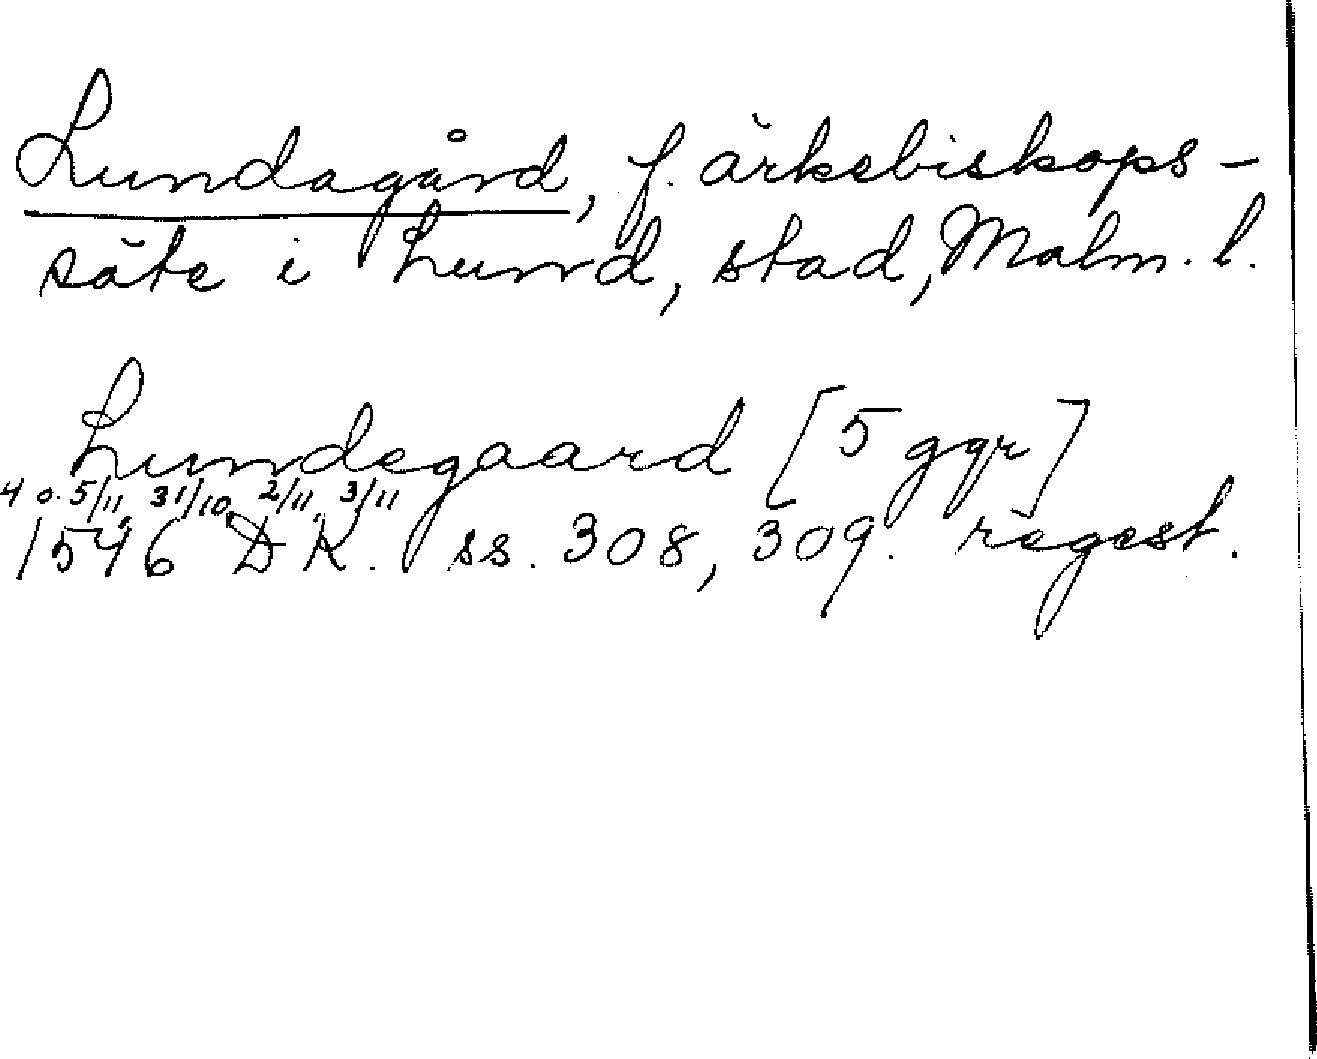 Lundagård, f. ärkebiskops-
säte i Lund, stad, Malm. l.
Lundegaard [5 ggr]
4 o. 5/11, 31/10, 2/11, 3/11
1546 DK. ss. 308, 309. regest.